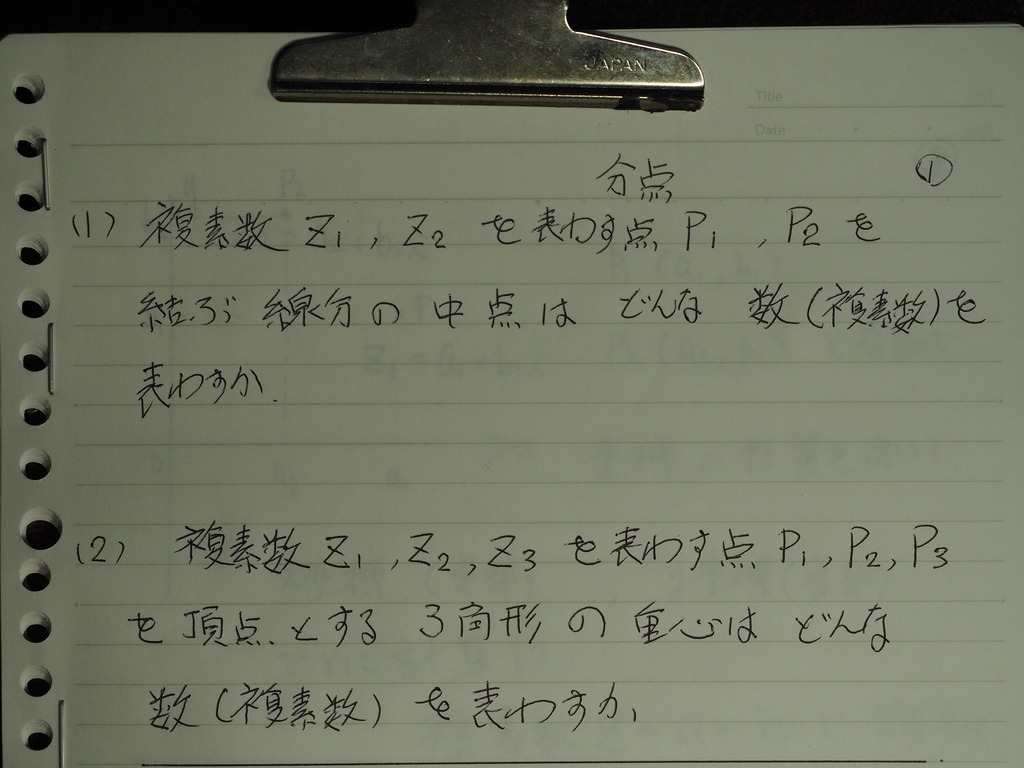 JAPAN
Title
Date
分点 ①
(1) 複素数 Z1, Z2 を表わす点 P1, P2 を
結ぶ線分の中点は どんな 数(複素数)を
表わすか.
(2) 複素数 Z1, Z2, Z3 を表わす点 P1, P2, P3
を頂点とする 3角形の重心は どんな
数(複素数)を表わすか,